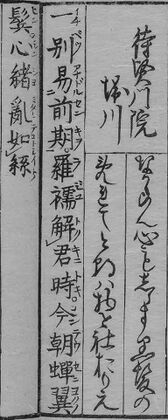 待賢門院
堀川
なかゝらん心もしらす黒髪の
みたれてけさは物を社おもへ
一別易前期。羅襦解君時。今朝蟬翼
鬢心緒亂如絲